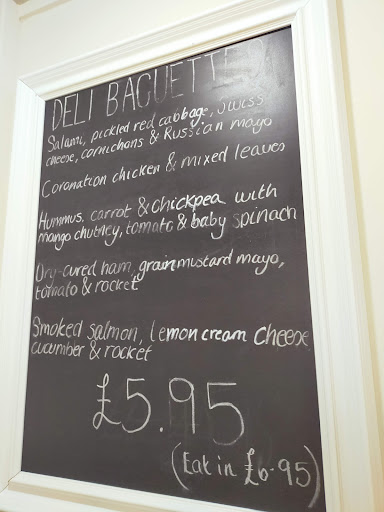 DELI BAGUETTES
Salami, pickled red cabbage, swiss
cheese, cornichons & Russian mayo
Coronation chicken & mixed leaves
Hummus, carrot & chickpea with
mango chutney, tomato & baby spinach
Dry-cured ham, grain mustard mayo,
tomato & rocket
Smoked salmon, lemon cream cheese
cucumber & rocket
£5.95
(Eat in £6.95)